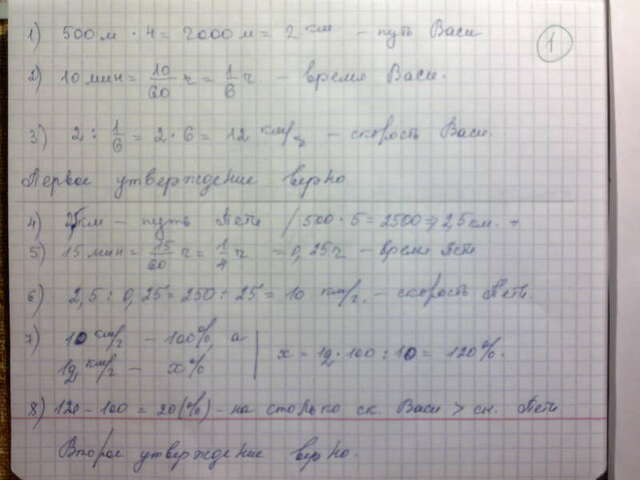 1
1) 500 м · 4 = 2000 м = 2 км – путь Васи
2) 10 мин = 10/60 ч = 1/6 ч – время Васи.
3) 2 : 1/6 = 2 · 6 = 12 км/ч – скорость Васи.
Первое утверждение верно
4) км – путь Пети / 500 · 5 = 2500 => 2,5 км.
5) 15 мин = 15/60 ч = 1/4 ч = 0,25 ч – время Пети
6) 2,5 : 0,25 = 250 : 25 = 10 км/ч. – скорость Пети.
7) 10 км/ч – 100%, а
12 км/ч – х% | х = 12 · 100 : 10 = 120%.
8) 120 – 100 = 20 (%) – на столько ск. Васи > ск. Пети
Второе утверждение верно.